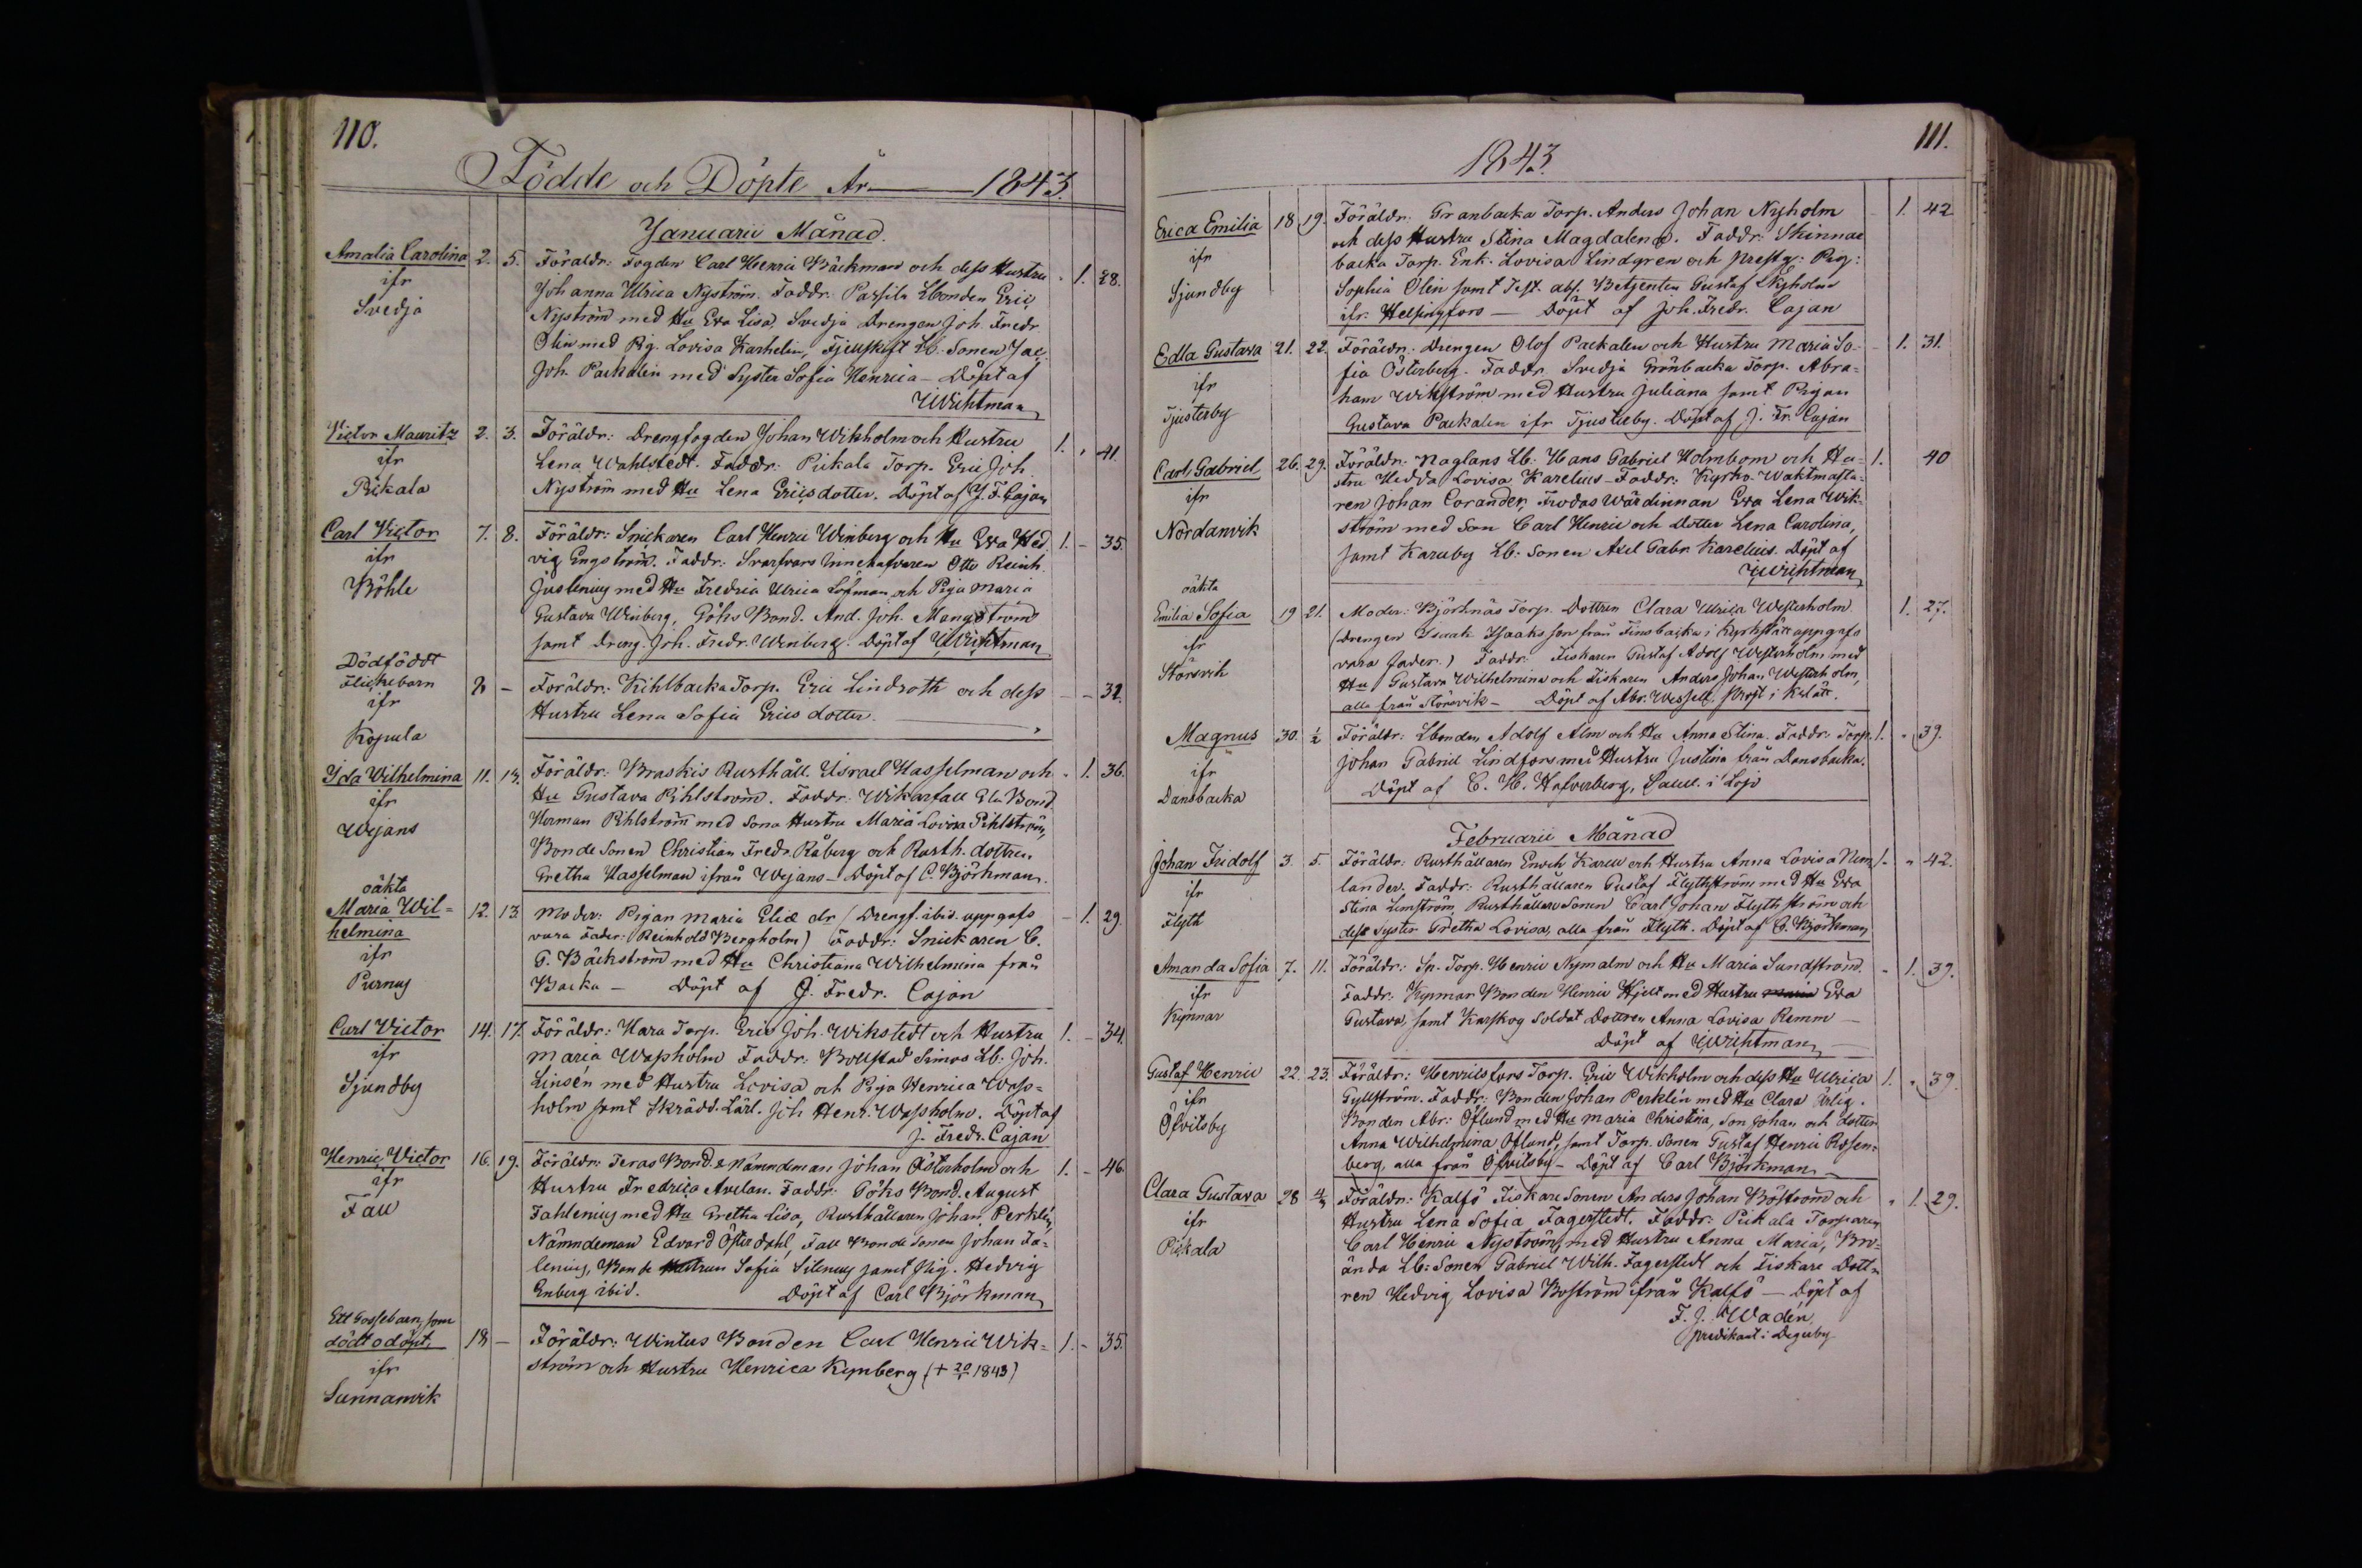 110.
Födde och Döpte År 1843.
Januarii Månad.
Amalia Carolina 2. 5. Föräldr: Fogden Carl Henric Bäckman och dess Hustru 1. 28.
ifr Johanna Ulrica Nyström. Faddr: Passila Lbonden Eric
Svedja Nyström med Hu Eva Lisa, Svedja Drengen Joh. Fredr.
Olin med Pig. Lovisa Karhelin, Fjellskift Lb. Sonen Jac.
Joh. Packalen med Syster Sofia Henrica – Döpt af
Wichtman
Victor Mauritz 2. 3. Föräldr: Drengfogden Johan Wikholm och Hustru 1. 41.
ifr Lena Wahlstedt. Faddr: Pickala Torp. Eric Joh.
Pickala Nyström med Hu Lena Ericsdotter. Döpt af J. F. Cajan
Carl Victor 7. 8. Föräldr: Snickaren Carl Henric Winberg och Hu Eva Hed 1. – 35.
ifr vig Engström. Faddr: Innehafvaren Otto Reinh.
Böhle Juslenius med Hu Fredrica Ulrica Löfman och Piga Maria
Gustava Winberg, Göhs Bond. And. Joh. Mangström
samt Dreng. Joh. Fredr. Winberg. Döpt af Wichtman
Dödfödt
Flickebarn 8 – Föräldr: Kihlbacka Torp. Eric Lindroth och dess – – 32.
ifr Hustru Lena Sofia Ericsdotter.
Kopula
Ida Wilhelmina 11. 12. Föräldr: Braskis Rusthåll. Israel Hasselman och 1. 36.
ifr Hu Gustava Pihlström. Faddr: Wikarfall Bond
Wejans Herman Pihlström med Sona Hustru Maria Lovisa Pihlström,
Bonde Sonen Christian Fredr. Råberg och Rusth. dottren
Gretha Hasselman ifrån Wejans – Döpt af C. Björkman.
oäkta
Maria Wil= 12. 13. Moder: Pigan Maria Eliæ dr (Drengf. ibid. uppgafs – 1. 29.
helmina vara Fader: Reinhold Bergholm) Faddr: Snickaren C.
ifr G. Bäckström med Hu Christiana Wilhelmina från
Purnus Backa – Döpt af J. Fredr. Cajan
Carl Victor 14. 17. Föräldr: Hara Torp. Eric Joh. Wikstedt och Hustru 1. – 34.
ifr Maria Wassholm Faddr: Bollstad Simos Lb. Joh.
Sjundby Linsén med Hustru Lovisa och Piga Henrica Wass=
holm samt Skrädd. Lärl. Joh Henr. Wassholm. Döpt af
J. Fredr. Cajan
Henric Victor 16. 19. Föräldr: Teras Bond. & Nämndeman Johan Österholm och 1. – 46.
ifr Hustru Fredrica Avelan. Faddr: Göks Bond. August
Fall Fahlenius med Hu Gretha Lisa, Rusthållaren Johan Perklén,
Nämndeman Edvard Österdahl, Fall Bonde Sonen Johan Fa=
lenius, Bonde Sofia Silenius samt Pig. Hedvig
Enberg ibid. Döpt af Carl Björkman
Ett Gossebarn, som
dödt odöpt. 18 – Föräldr: Wintus Bonden Carl Henric Wik= 1. – 35.
ifr ström och Hustru Henrica Kynberg (+ 20/1 1843)
Sunnanvik
111.
1843.
Erica Emilia 18 19. Föräldr: Granbacka Torp. Anders Johan Nyholm 1. 42
ifr och dess Hustru Stina Magdalena. Faddr: Skinnar
Sjundby backa Torp. Enk. Lovisa Lindgren och Prestg: Pig:
Sophia Olin samt Betjenten Gustaf Nyholm
ifr. Helsingfors – Döpt af Joh. Fredr. Cajan
Edla Gustava 21. 22. Föräldr: Drengen Olof Packalen och Hustru Maria So- – 1. 31.
ifr fia Österberg. Faddr. Svedja Grönbacka Torp. Abra=
Tjusterby ham Wikström med Hustru Juliana samt Pigan
Gustava Packalen ifr Tjusterby. Döpt af J. Fr. Cajan
Carl Gabriel 26. 29. Föräldr: Naglans Lb. Hans Gabriel Holmbom och Hu= 1. 40
ifr stru Hedda Lovisa Karelius – Faddr: Kyrko-Waktmästa=
Nordanvik ren Johan Corander, Frodas Wärdinnan Eva Lena Wik=
ström med Son Carl Henric och Dotter Lena Carolina,
samt Karuby Lb: Sonen Axel Gabr. Karelius. Döpt af
Wichtman
oäkta
Emilia Sofia 19 21. Moder: Björknäs Torp. Dottren Clara Ulrica Westerholm 1. 27.
ifr (Drengen Isaak Isaaksson från Finsbacka i Kyrkslätt uppgafs
Störsvik vara fader.) Faddr: Fiskaren Gustaf Adolf Westerholm med
Hu Gustava Wilhelmina och Fiskaren Anders Johan Westerholm,
alla från Störsvik – Döpt af Abr. Wessell, Prost i Kslätt.
Magnus 30. ½ Föräldr: Lbonden Adolf Alm och Hu Anna Stina. Faddr: Torp. 1. 39.
ifr Johan Gabriel Lindfors med Hustru Justina från Dansbacka.
Dansbacka Döpt af C. H. Hafverberg, Sacell. i Lojo
Februarii Månad
Johan Fridolf 3. 5. Föräldr: Rusthållaren Enoch Karell och Hustru Anna Lovisa Num= 1. 42.
ifr lander. Faddr: Rusthållaren Gustaf Flythström med Hu Eva
Flyth Stina Limström, Rusthållare Sonen Carl Johan Flythström och
dess Syster Gretha Lovisa, alla från Flyth. Döpt af C. Björkman
Amanda Sofia 7. 11. Föräldr: Sp. Torp. Henric Nymalm och Hu Maria Sundström. 1. 39.
ifr Faddr: Kynnar Bonden Henric Hjelt med Hustru Maria Eva
Kynnar Gustava, samt Karskog Soldat Dottren Anna Lovisa Remm –
Döpt af Wichtman
Gustaf Henric 22. 23. Föräldr: Henricsfors Torp. Eric Wikholm och dess Hu Ulrica 1. 39.
ifr Gyllström. Faddr: Bonden Johan Perklén med Hu Clara Ärlig.
Öfvitsby Bonden Abr: Öflund med Hu Maria Christina, Son Johan och dotter
Anna Wilhelmina Öflund, samt Torp. Sonen Gustaf Henric Rosen=
berg, alla från Öfvitsby – Döpt af Carl Björkman
Clara Gustava 28 4/3 Föräldr: Kalfö Fiskare Sonen Anders Johan Boström och 1. 29.
ifr Hustru Lena Sofia Fagerstedt. Faddr: Pickala Torparen
Pickala Carl Henric Nyström, med Hustru Anna Maria, Bro=
ända Lb: Sonen Gabriel Wilh. Fagerstedt och Fiskare Dott=
ren Hedvig Lovisa Boström ifrån Kalfö – Döpt af
F. J. Wadén
predikant i Degerby